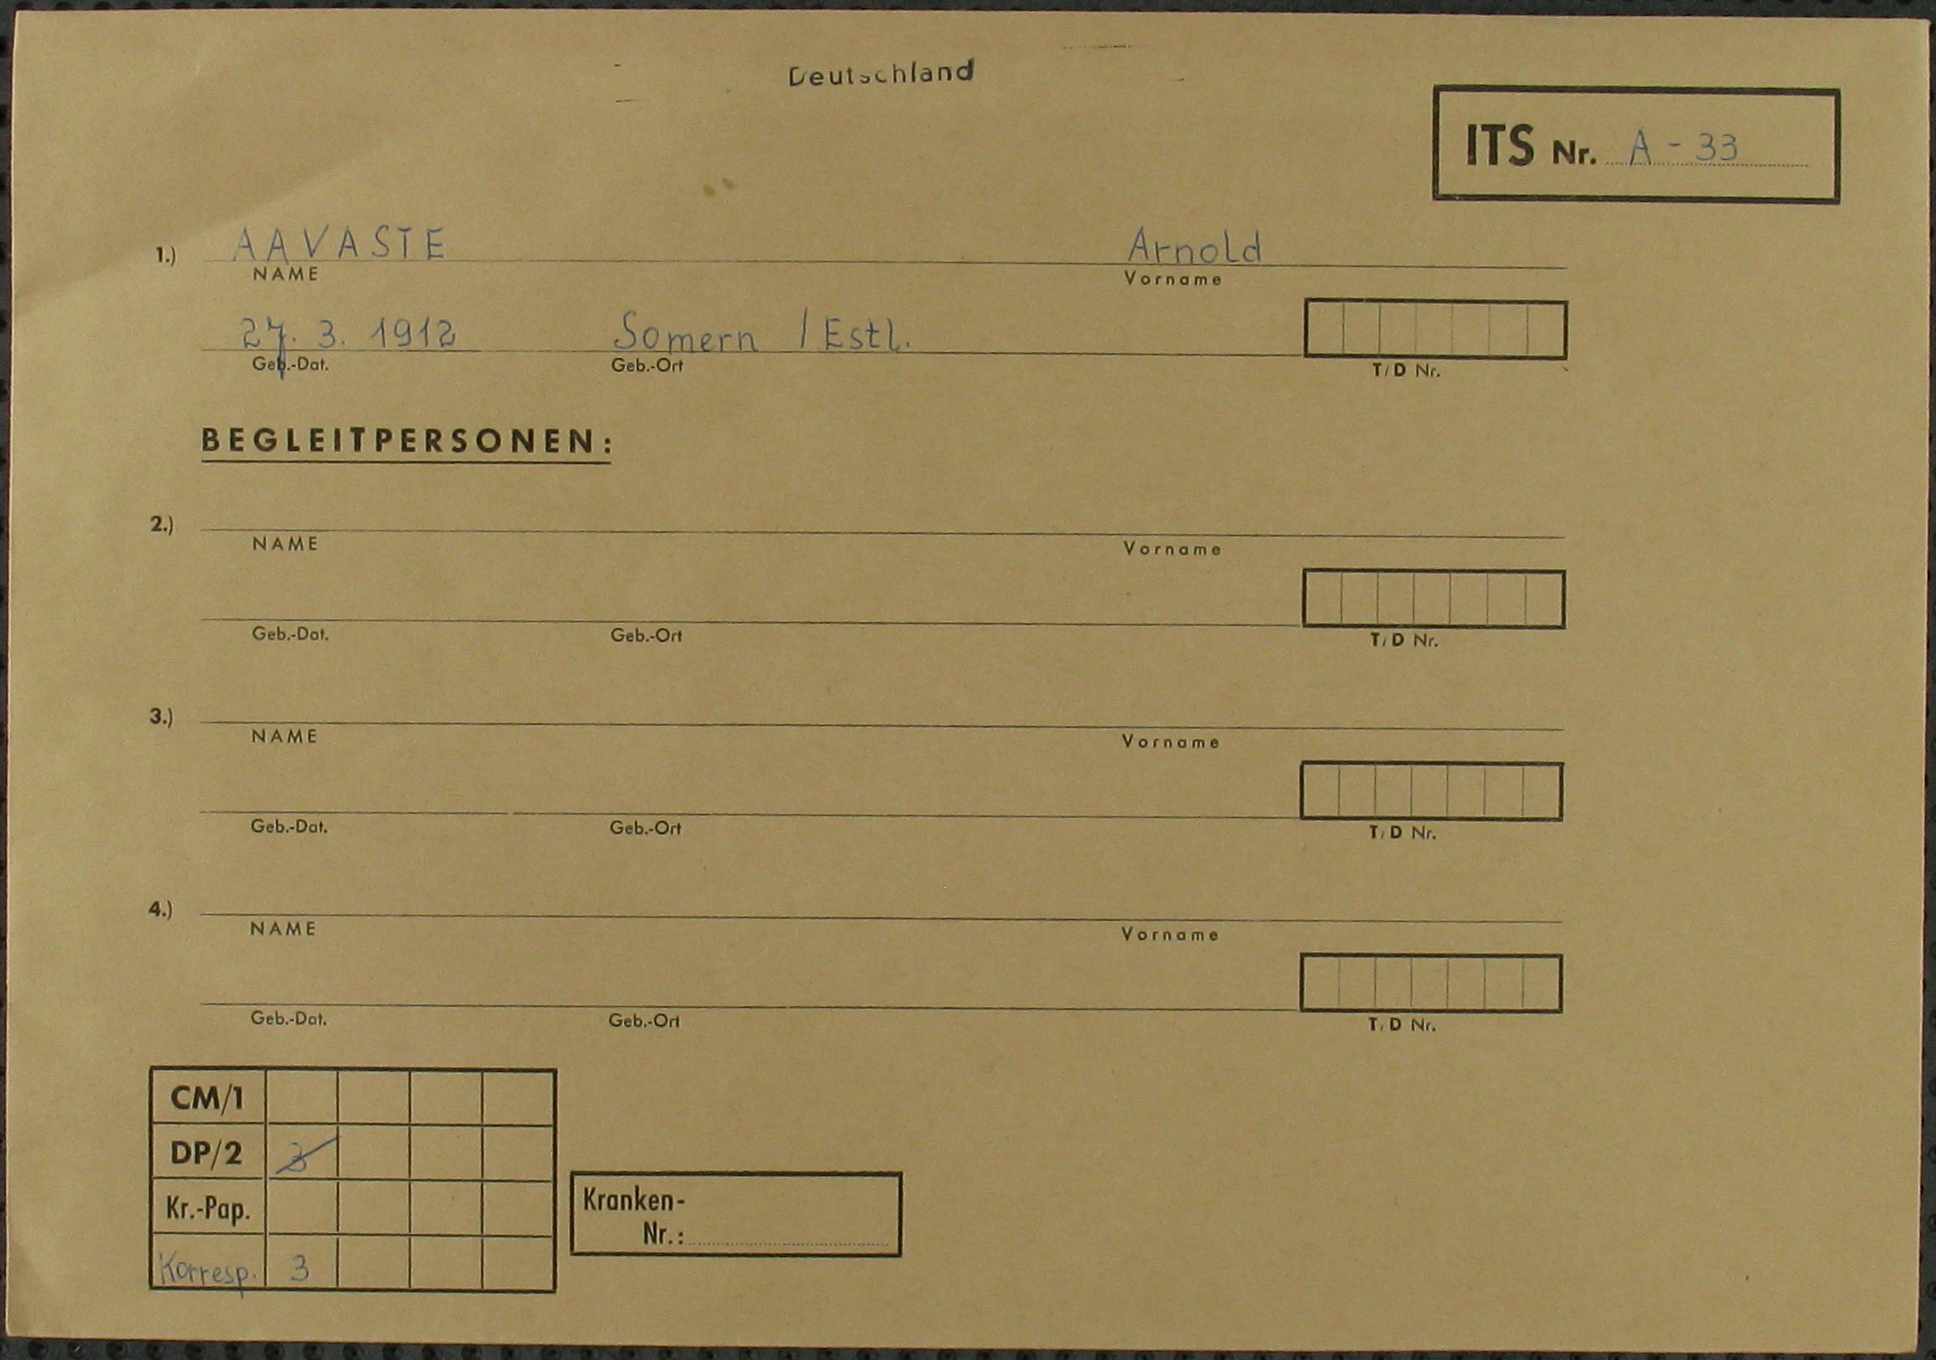 Deutschland
ITS Nr. A - 33
1.) AAVASTE Arnold
NAME Vorname
27. 3. 1912 Somern / Estl.
Geb.-Dat. Geb.-Ort T/D Nr.
BEGLEITPERSONEN:
2.)
NAME Vorname
Geb.-Dat. Geb.-Ort T/D Nr.
3.)
NAME Vorname
Geb.-Dat. Geb.-Ort T/D Nr.
4.)
NAME Vorname
Geb.-Dat. Geb.-Ort T/D Nr.
CM/1
DP/2
Kr.-Pap.
Korresp. 3
Kranken-
Nr.: